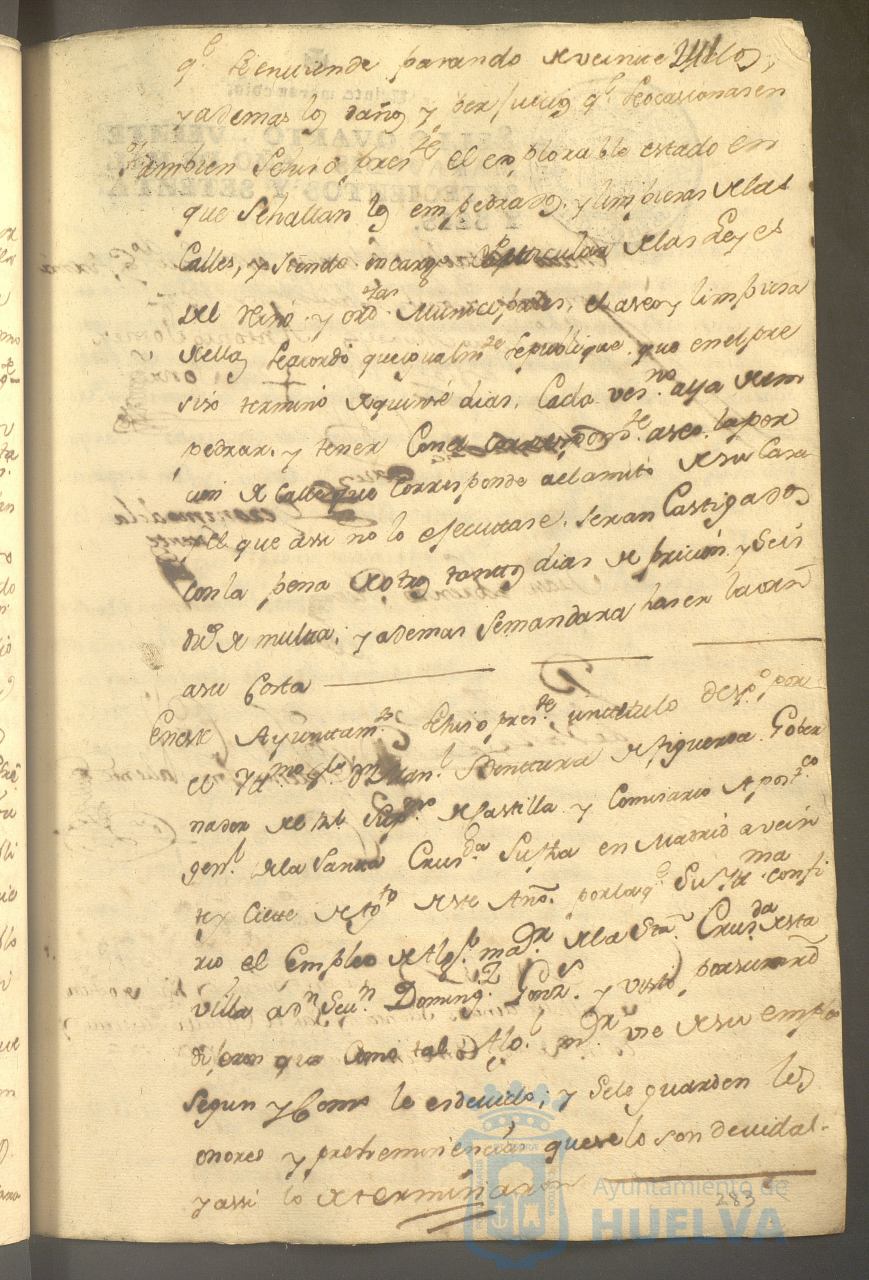 qe se entiende parando de veinte
y ademas los daños y perjuicios qe se ocasionasen
Tambien se hiso preste el deplorable estado en
que se hallan los empedrados, y limpieras de las
Calles, y siendo encargo particular de las Leyes
del Reino y ordzas Municipales, el aseo y limpiesa
de ellas se acordó que igualmte se publique que en el pre
siso termino de quinse dias, Cada vesno aya de em
pedrar, y tener Con el correspondte aseo la por
cion de Calle que corresponde al amito de su Casa
y el que assi no lo ejecutase, seran Castigados
con la pena de otros tantos dias de pricion y Seis
dus de multa, y ademas se mandara haser la
a su Costa
En este Ayuntamto se hiso preste un titulo desdo por
el Yllmo Sor Dn Manl Ventura de Figueroa Gober
nador del Rl Supmo de Castilla y Comisario Apostco
genl de la Santa Crusda Su fha en Madrid a vein
te y Ciete de Agto de este Año, por la qe Su Yllma confi
rio el Empleo de Algl mar de la Sta Crusda de esta
villa a Dn Domingo y visto por su mrd
dijeron que Como tal Algl mar use de su empleo
segun y Como le es devido, y se le guarden los
onores y preheminencias que se le son devidas
y assi lo determinaron
283
Ayuntamiento de
HUELVA